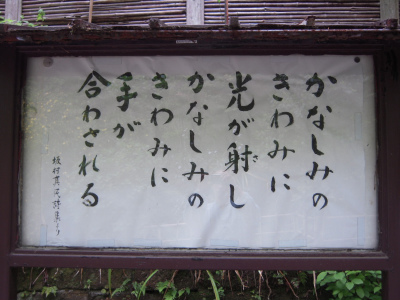 かなしみの
きわみに
光が射し
さ
かなしみの
きわみに
手が
合わされる
坂村真民詩集より